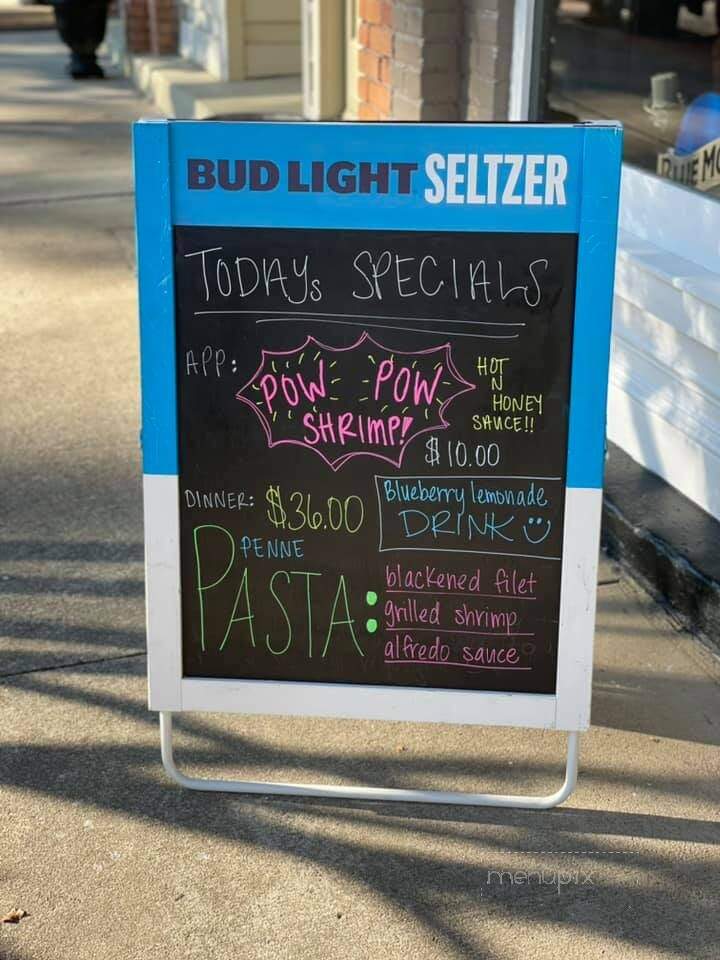 BUD LIGHT SELTZER
TODAYs SPECIALS
APP:
POW POW
SHRIMP!
HOT
N
HONEY
SAUCE!!
$10.00
DINNER: $36.00
Blueberry lemonade
DRINK
PENNE
PASTA:
blackened filet
grilled shrimp
alfredo sauce
BLUE MO
menupix